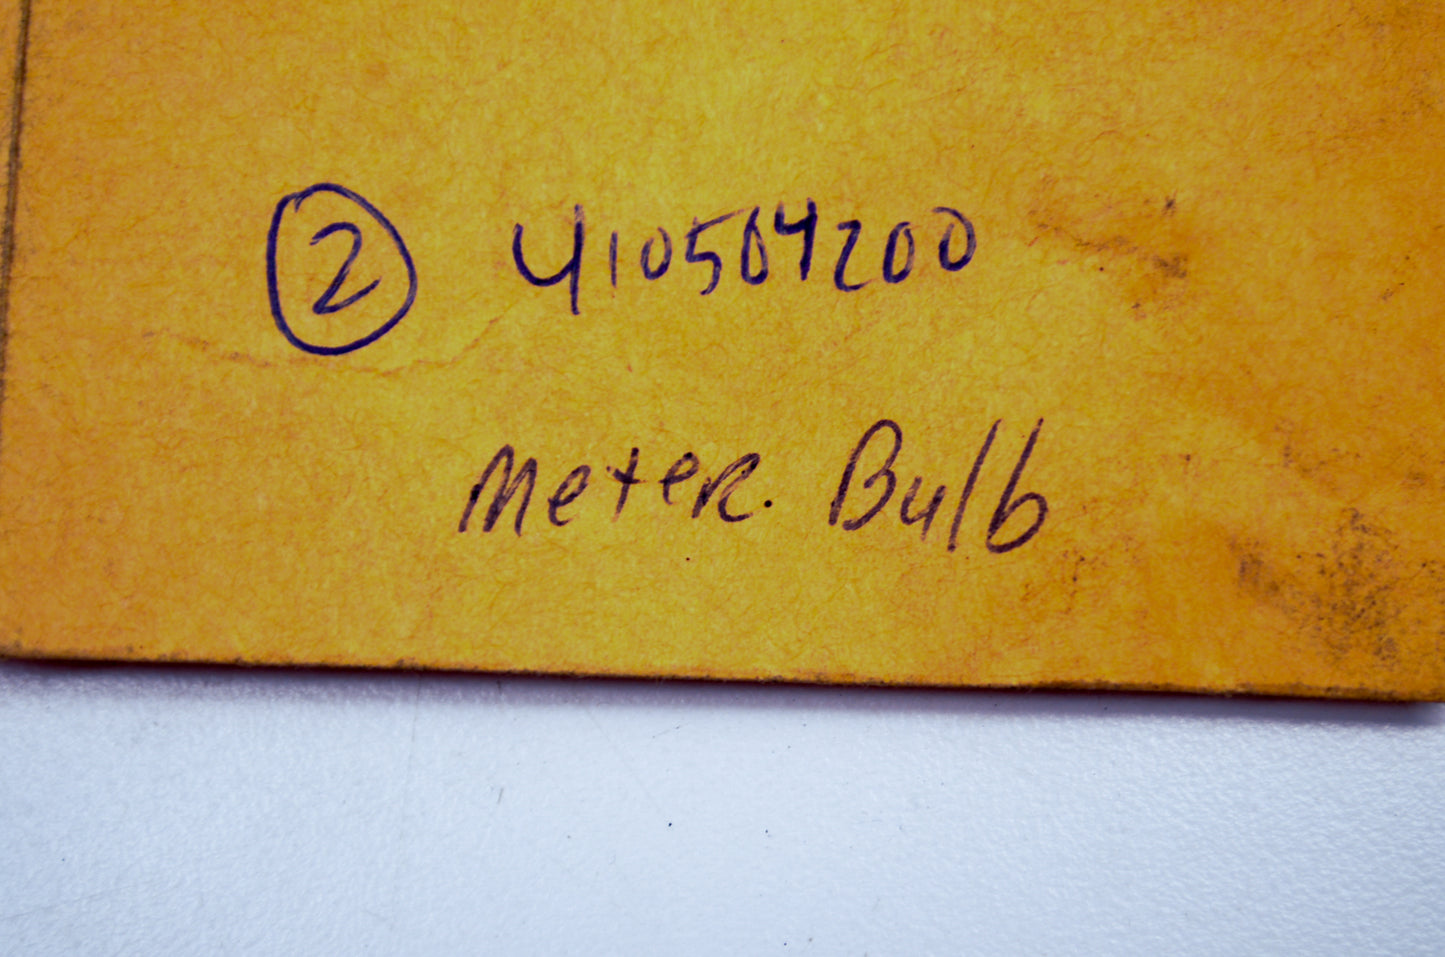 2 410504200
Meter. Bulb